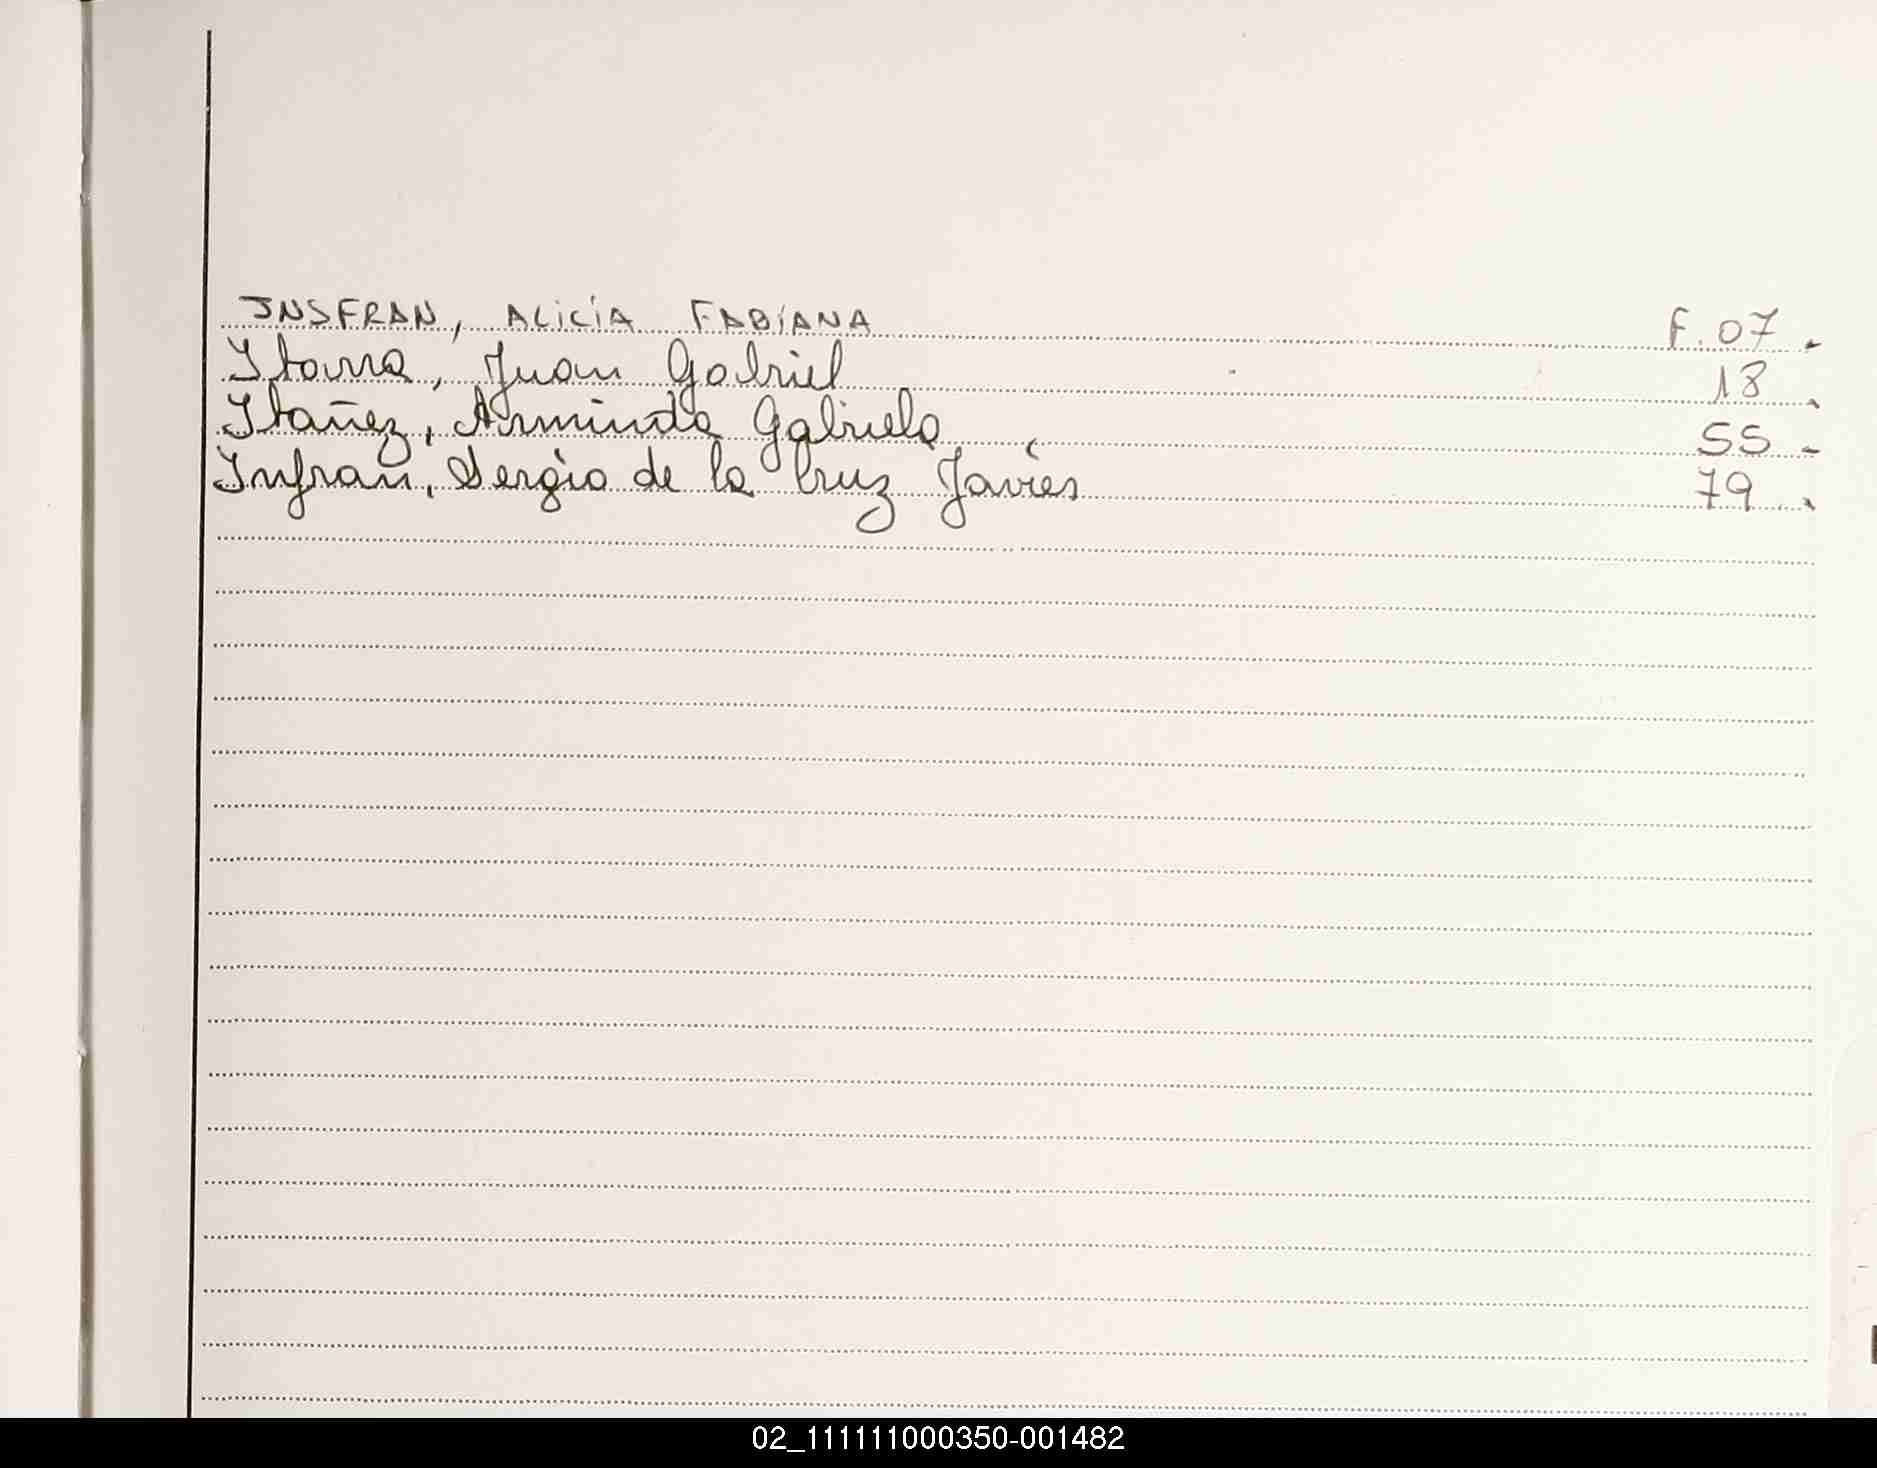 INSFRAN, ALICIA FABIANA F. 07.
Ibarra, Juan Gabriel 18.
Ibañez, Arminda Gabriela 55-
Infran, Sergio de la Cruz Javier 79.
02_111111000350-001482